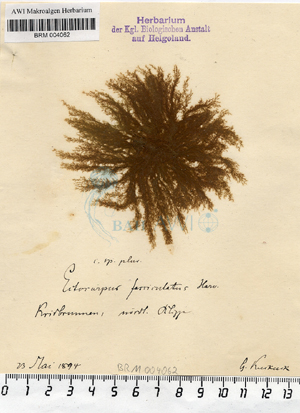 AWI Makroalgen Herbarium
BRM 004062
Herbarium
der Kgl. Biologischen Anstalt
auf Helgoland.
c. sp. plur.
Ectocarpus fasciculatus Harv.
nördl. Klipp
23 Mai 1894
BRM 004062
G. Kuckuck
0 1 2 3 4 5 6 7 8 9 10 11 12 13